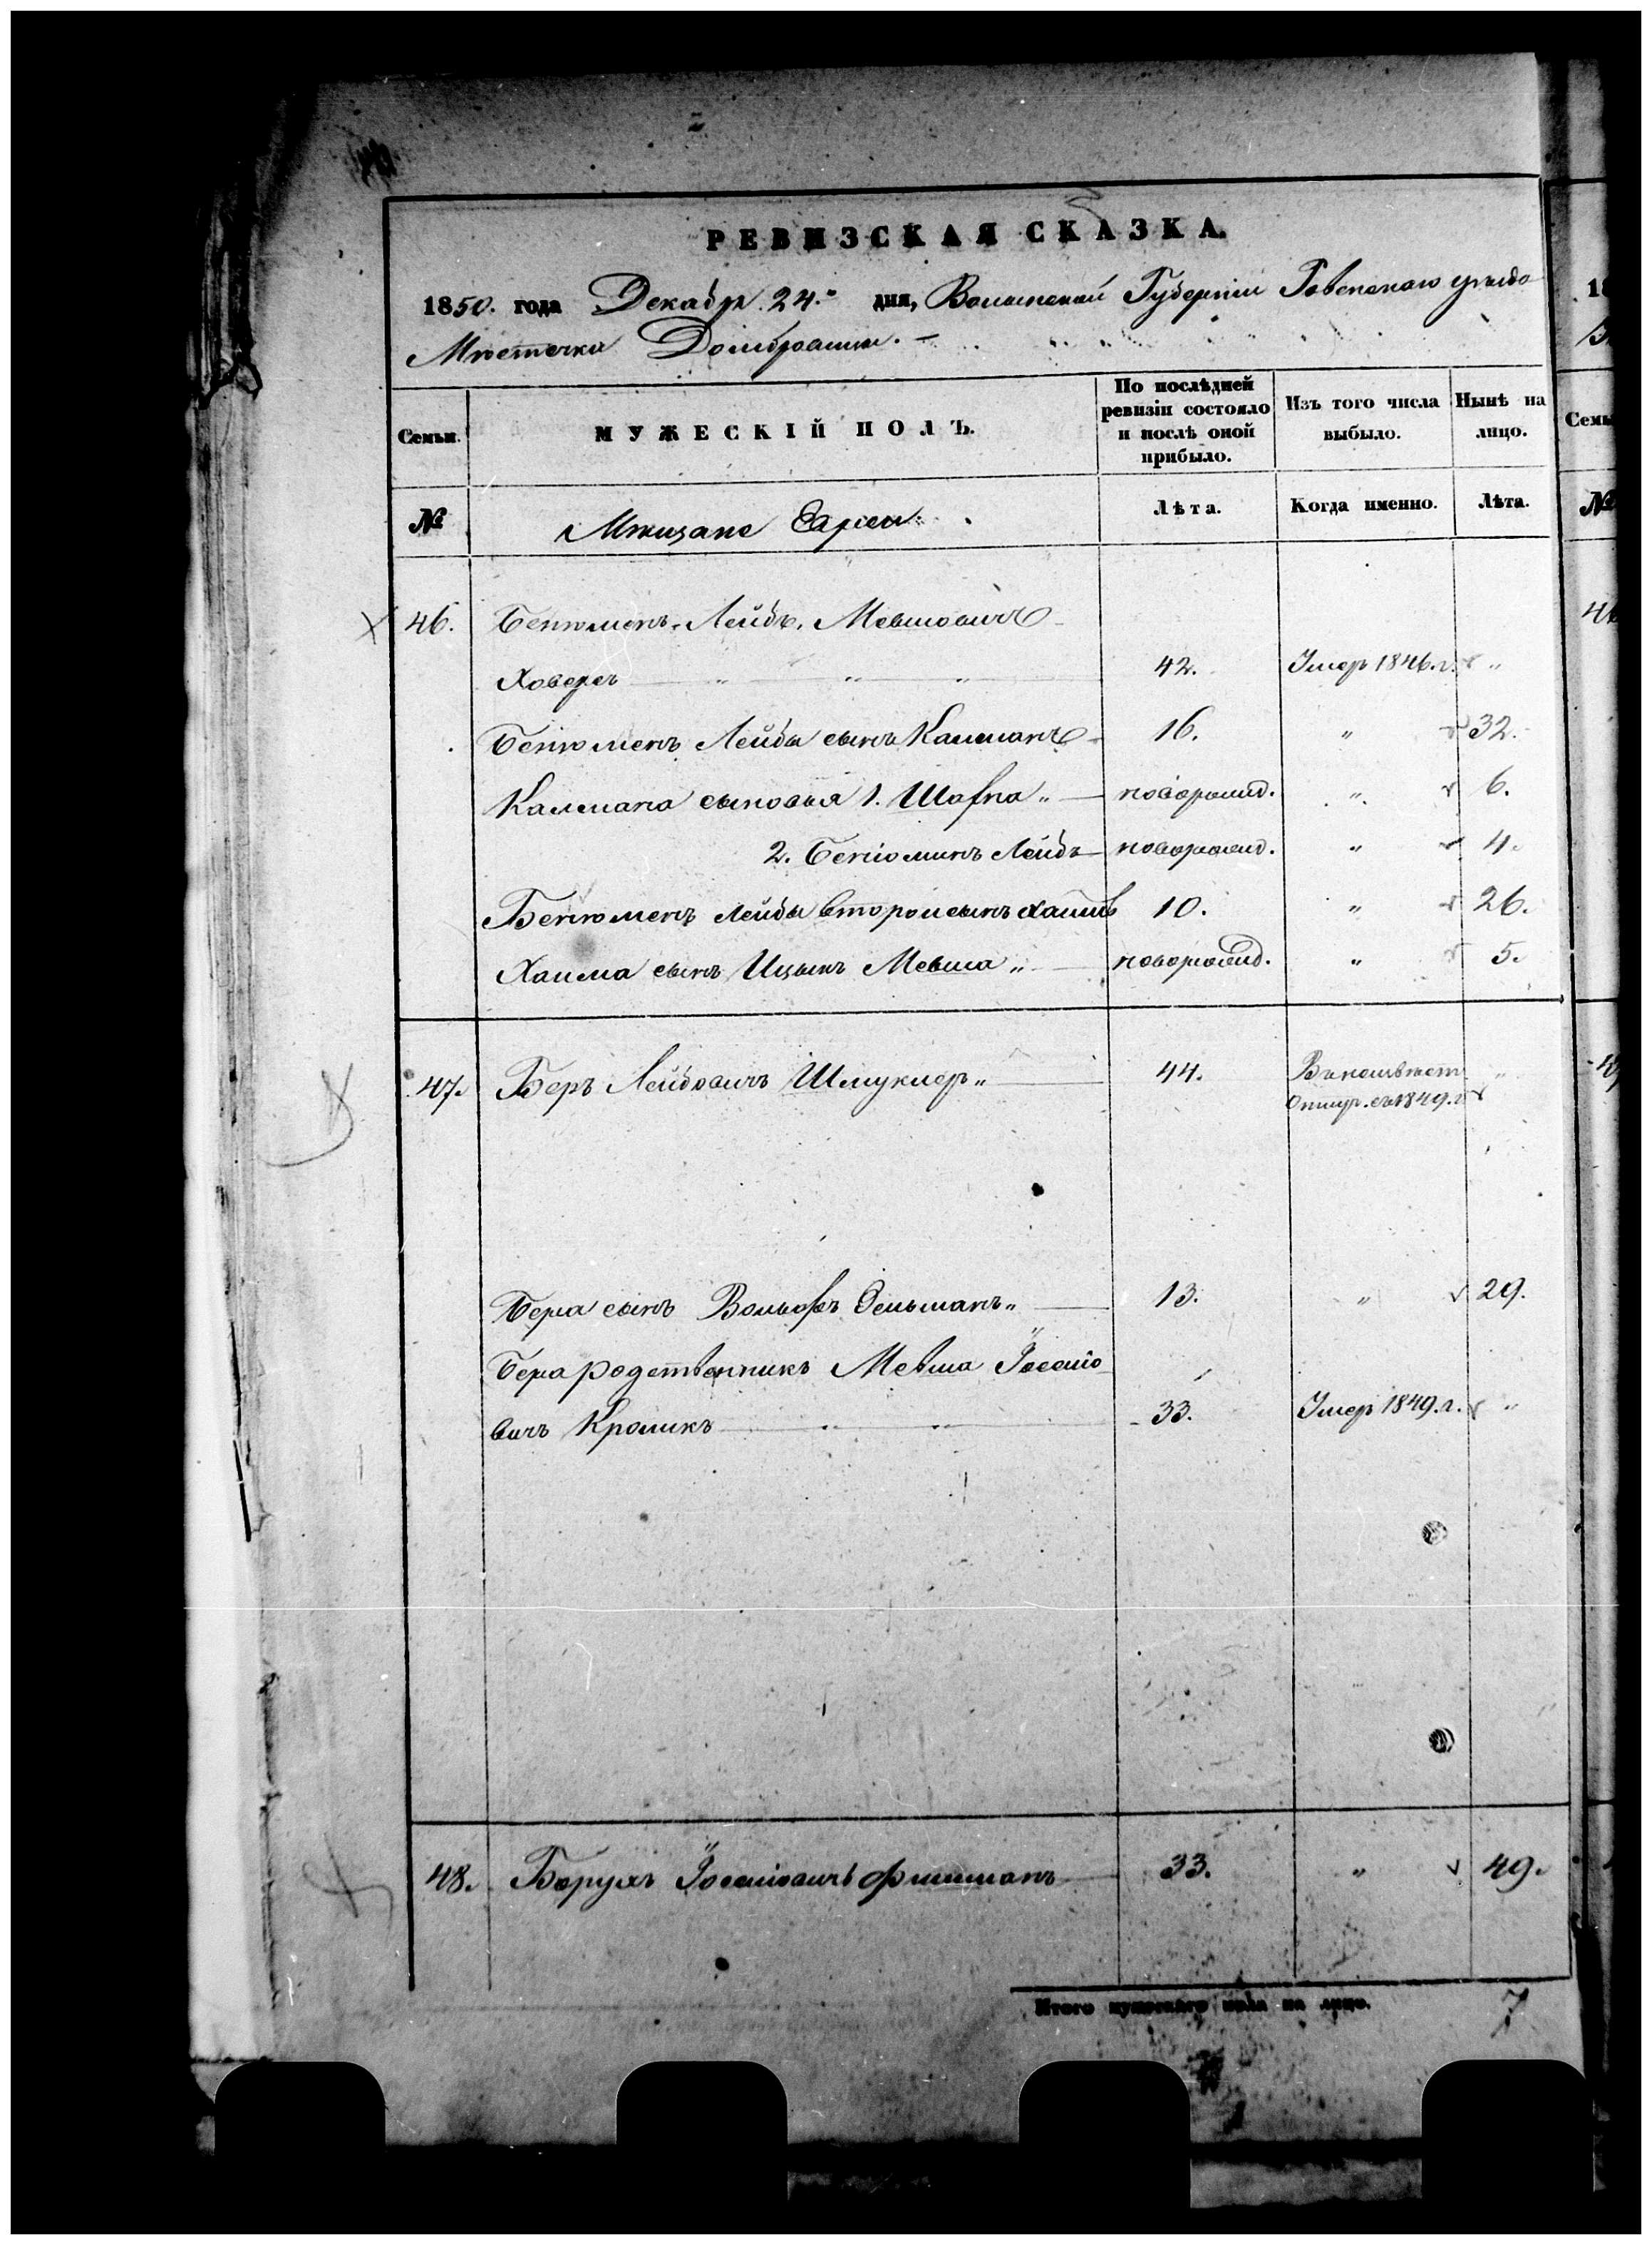 РЕВИЗСКАЯ СКАЗКА.
1850. года Декабря 24. дня, Волынской Губернии Ровенскаго уѣзда
Мѣстечка Домбровицы. -
Семьи.
МУЖЕСКІЙ ПОЛЪ.
По послѣдней ревизіи состояло и послѣ оной прибыло.
Изъ того числа выбыло.
Нынѣ на лицо.
№
Мѣщане Евреи.
Лѣта.
Когда именно.
Лѣта.
46. Бенюменъ Лейбъ Мевшовичъ
42. Умеръ 1846.г. "
Бенюменъ Лейбы сынъ Калманъ 16. " 32.
Калмана сыновья 1. " новорожд. " 6.
2. Беніоминъ Лейбъ новорожд. " 4.
Бенюменъ Лейбы второй сынъ Хаимъ 10. " 26.
Хаима сынъ Ицыкъ Мевша " новорожд. " 5.
47. Беръ Лейбовичъ Шмуклеръ " 44. Въ неизвѣст. "
съ 1849.г
Бера сынъ Вольфъ Зельманъ " 13. " 29.
Бера родственникъ Мевша Іосіо
вичъ Кроликъ 33. Умеръ 1849.г. "
48. Борухъ Іосіовичъ Фишманъ 33. " 49.
Итого мужескаго пола на лицо. 7
18
Семьи
№
46